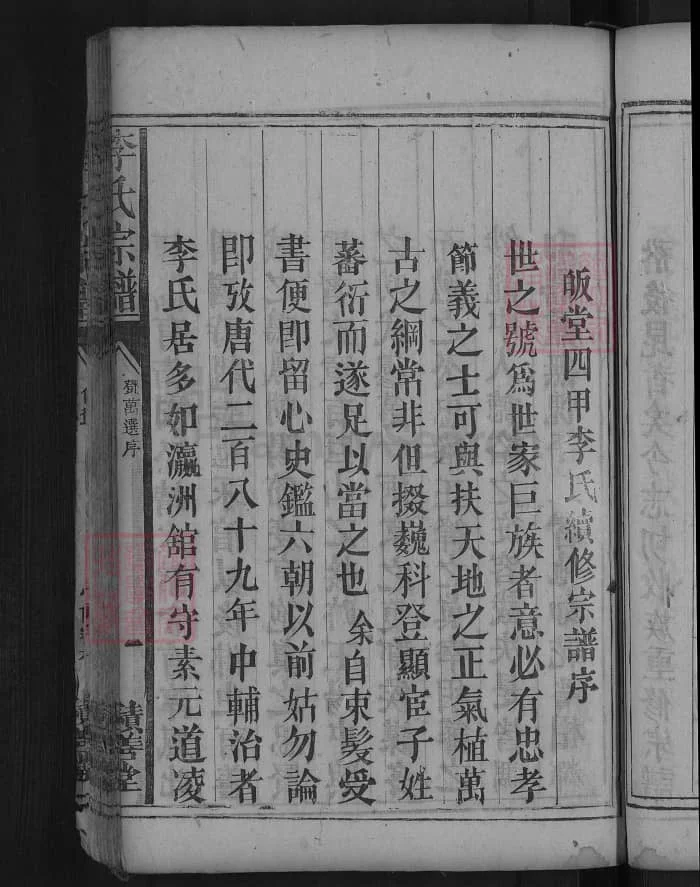 皈堂四甲李氏續修宗譜序
世之號爲世家巨族者意必有忠孝
節義之士可與扶天地之正氣植萬
古之綱常非但掇巍科登顯宦子姓
蕃衍而遂足以當之也余自束髮受
書便卽留心史鑑六朝以前姑勿論
卽攷唐代二百八十九年中輔治者
李氏居多如瀛洲舘有守素元道凌
李氏宗譜
贊萬選序
一
積善堂